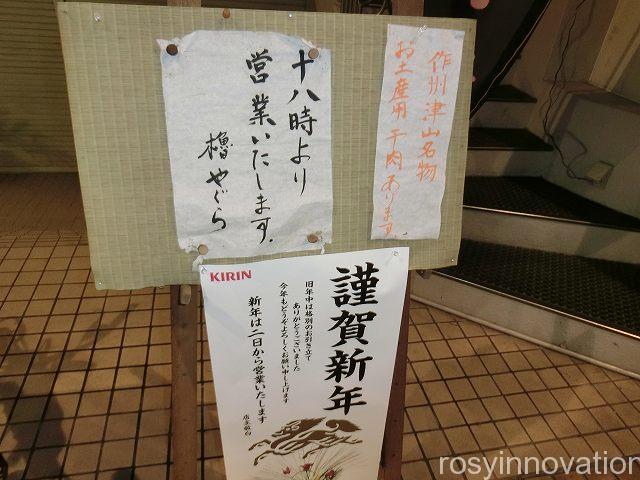 作州津山名物
お土産用 干肉あります。
十八時より
営業いたします。
櫓やぐら
KIRIN
謹賀新年
旧年中は格別のお引き立て
ありがとうございました
今年もどうぞよろしくお願い申し上げます
新年は二日から営業いたします
店主敬白
rosyinnovation